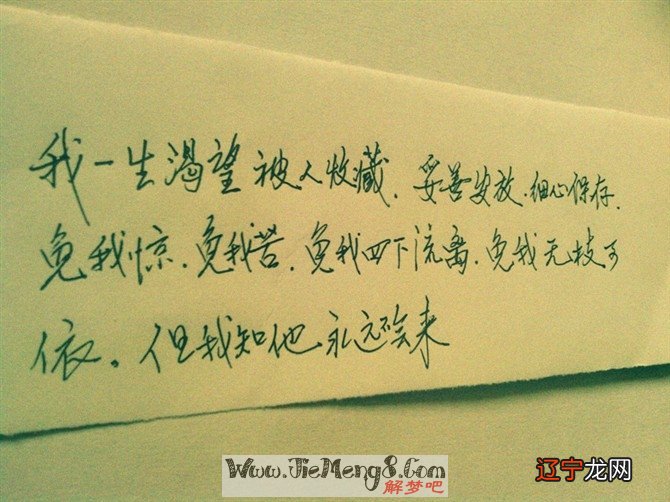 我一生渴望被人收藏,妥善安放,细心保存.
免我惊,免我苦,免我四下流离,免我无枝可
依。但我知他永远不会来
Www.JieMeng8.Com
解梦吧
辽宁龙网